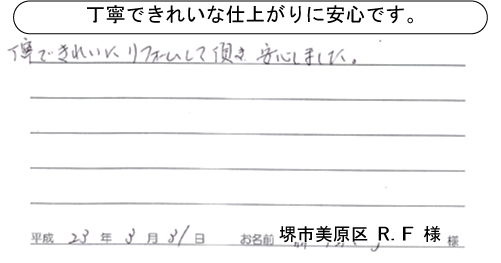 丁寧できれいな仕上がりに安心です。
丁寧できれいにリフォームして頂き安心しました。
平成 23 年 3 月 31 日 お名前 堺市美原区 R.F 様 様